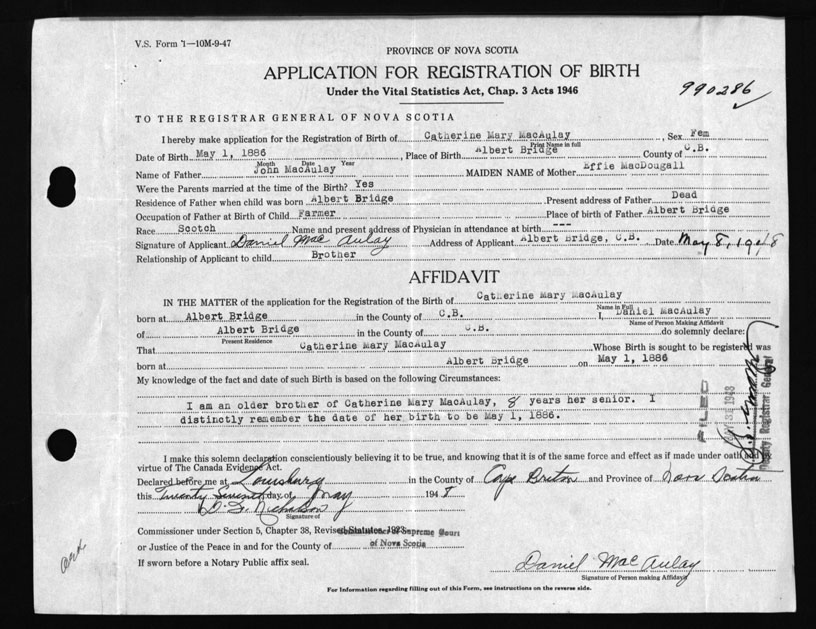 V.S. Form 1—10M-9-47
PROVINCE OF NOVA SCOTIA
APPLICATION FOR REGISTRATION OF BIRTH
Under the Vital Statistics Act, Chap. 3 Acts 1946
990286
TO THE REGISTRAR GENERAL OF NOVA SCOTIA
I hereby make application for the Registration of Birth of Catherine Mary MacAulay, Sex Fem
Print Name in full
Date of Birth May 1, 1886, Place of Birth Albert Bridge County of C.B.
Month Date Year
Name of Father John MacAulay MAIDEN NAME of Mother Effie MacDougall
Were the Parents married at the time of the Birth? Yes
Residence of Father when child was born Albert Bridge Present address of Father Dead
Occupation of Father at Birth of Child Farmer Place of birth of Father Albert Bridge
Race Scotch Name and present address of Physician in attendance at birth ---
Signature of Applicant Daniel MacAulay Address of Applicant Albert Bridge, C.B. Date May 8, 1948
Relationship of Applicant to child Brother
AFFIDAVIT
IN THE MATTER of the application for the Registration of the Birth of Catherine Mary MacAulay
Name in Full
born at Albert Bridge in the County of C.B. I, Daniel MacAulay
Name of Person Making Affidavit
of Albert Bridge in the County of C.B. do solemnly declare:
Present Residence
That Catherine Mary MacAulay Whose Birth is sought to be registered was
born at Albert Bridge on May 1, 1886
My knowledge of the fact and date of such Birth is based on the following Circumstances:
I am an older brother of Catherine Mary MacAulay, 8 years her senior. I
distinctly remember the date of her birth to be May 1, 1886.
FILED
1948
Deputy Registrar General
I make this solemn declaration conscientiously believing it to be true, and knowing that it is of the same force and effect as if made under oath and by
virtue of The Canada Evidence Act.
Declared before me at Louisburg in the County of Cape Breton and Province of Nova Scotia
this Twenty Seventh day of May 1948
D. G. Nicholson
Signature of
Commissioner under Section 5, Chapter 38, Revised Statutes, 1923 Supreme Court
or Justice of the Peace in and for the County of of Nova Scotia
If sworn before a Notary Public affix seal.
Daniel MacAulay
Signature of Person making Affidavit
For Information regarding filling out of this Form, see instructions on the reverse side.